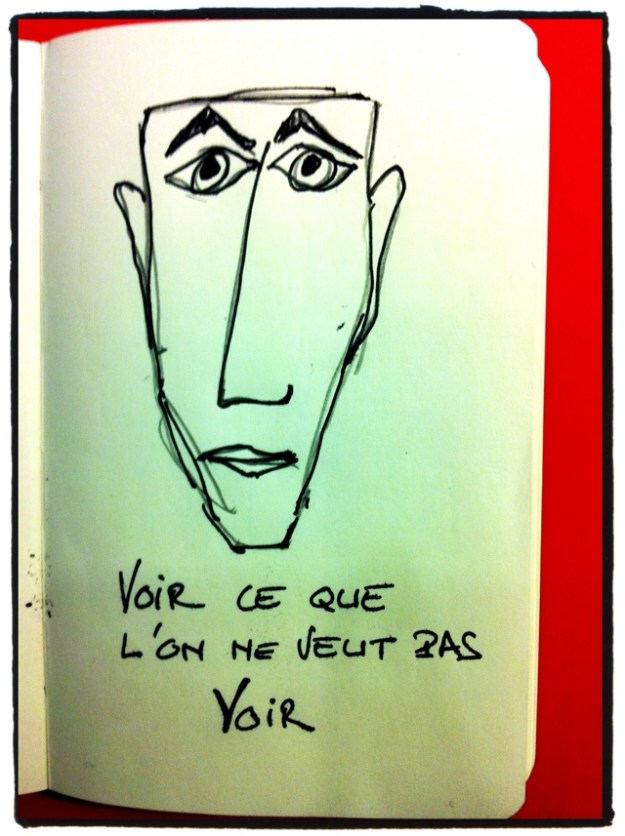 VOIR CE QUE
L'ON NE VEUT PAS
VOIR